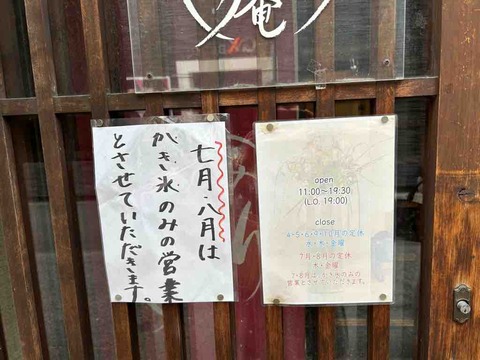 庵
七月、八月は
かき氷のみの営業
とさせていただきます。
open
11:00～19:30
(L.O. 19:00)
close
4・5・6・9・10月の定休
水・木・金曜
7月・8月の定休
木・金曜
7・8月は、かき氷のみの
営業とさせていただきます。